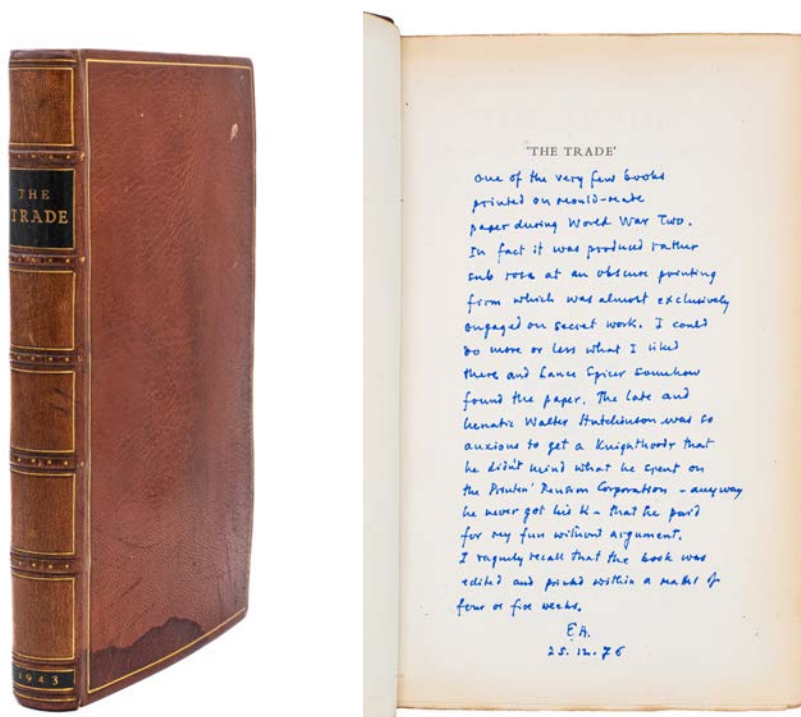 THE
TRADE
1943
'THE TRADE'
one of the very few books
printed on mould-made
paper during World War Two.
In fact it was produced rather
sub rosa at an obscure printing
firm which was almost exclusively
engaged on secret work. I could
do more or less what I liked
there and Lance Spicer somehow
found the paper. The late and
lunatic Walter Hutchinson was so
anxious to get a Knighthood that
he didn't mind what he spent on
the Printers' Pension Corporation - anyway
he never got his K - that he paid
for my fun without argument.
I vaguely recall that the book was
edited and printed within a matter of
four or five weeks.
E.H.
25.12.76